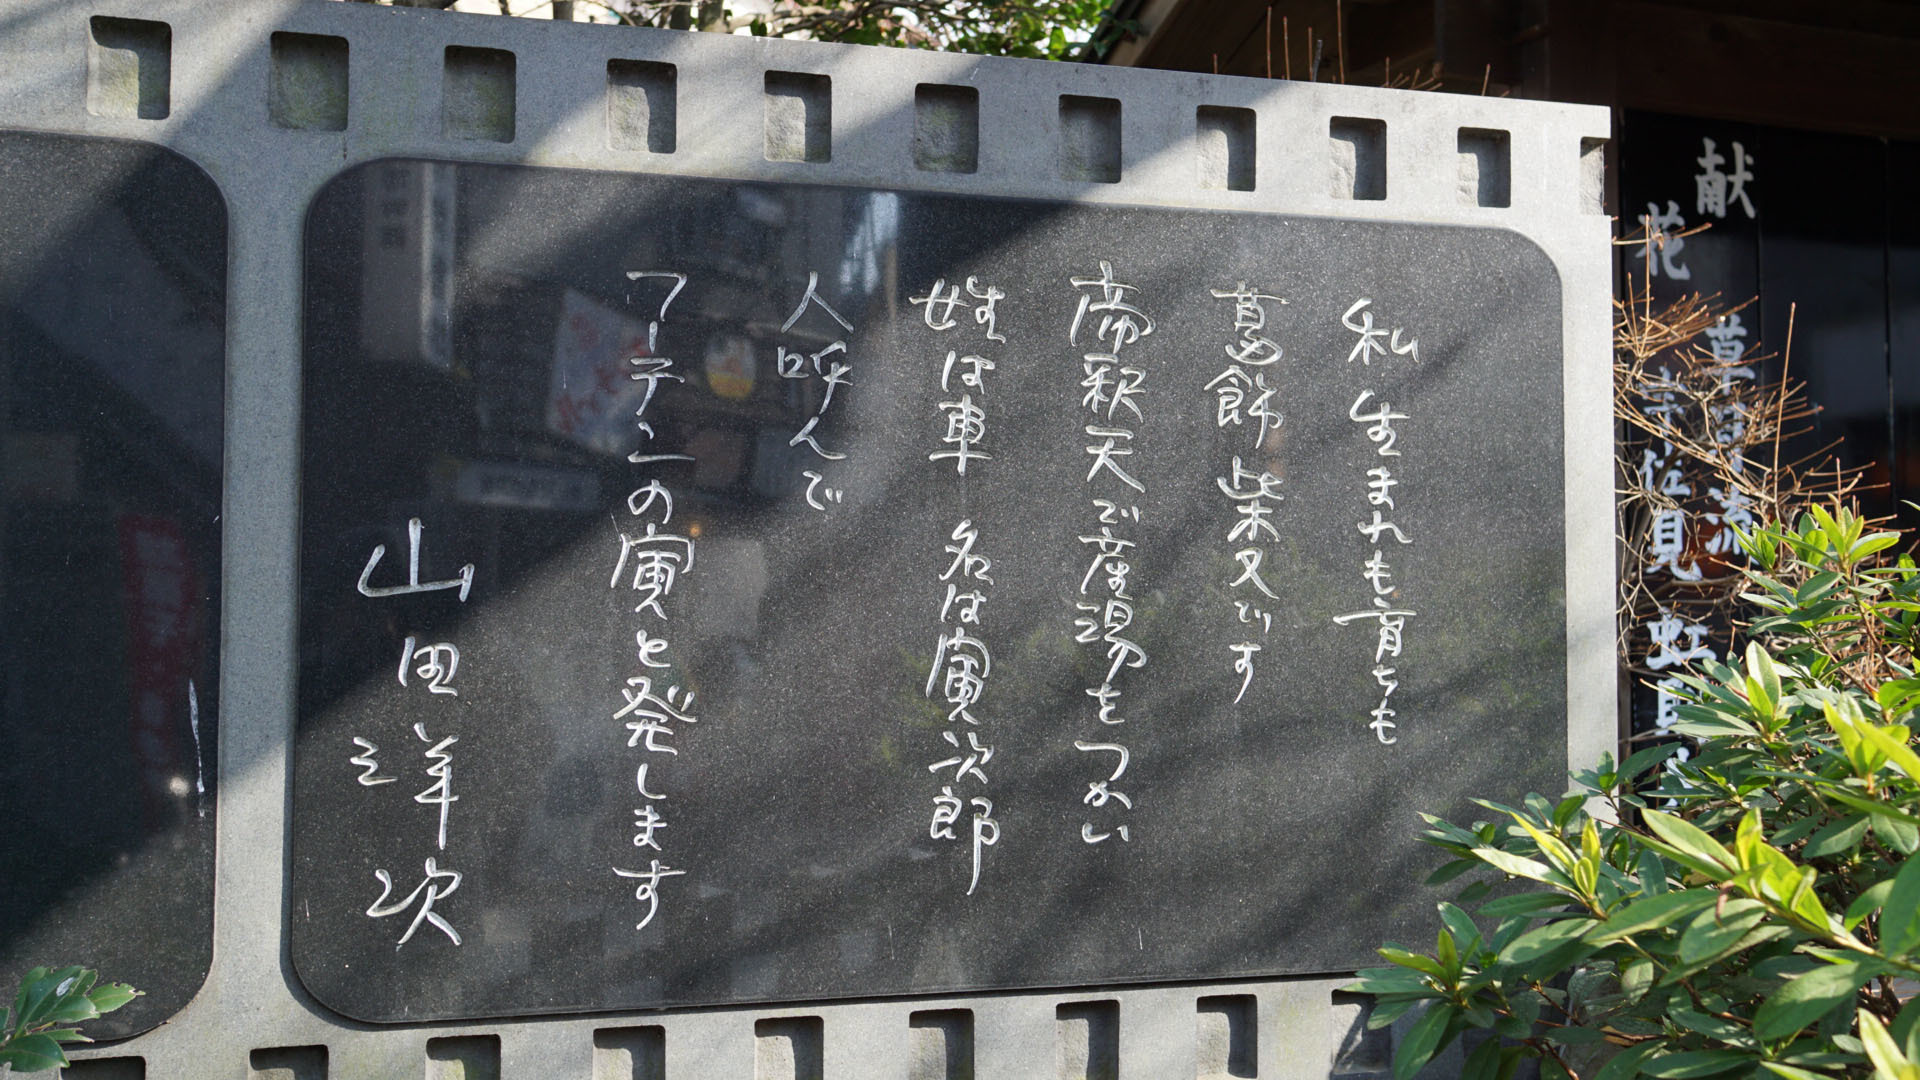 私 生まれも育ちも
葛飾柴又です
帝釈天で産湯をつかい
姓は車 名は寅次郎
人呼んで
フーテンの寅と発します
山田洋次
献花